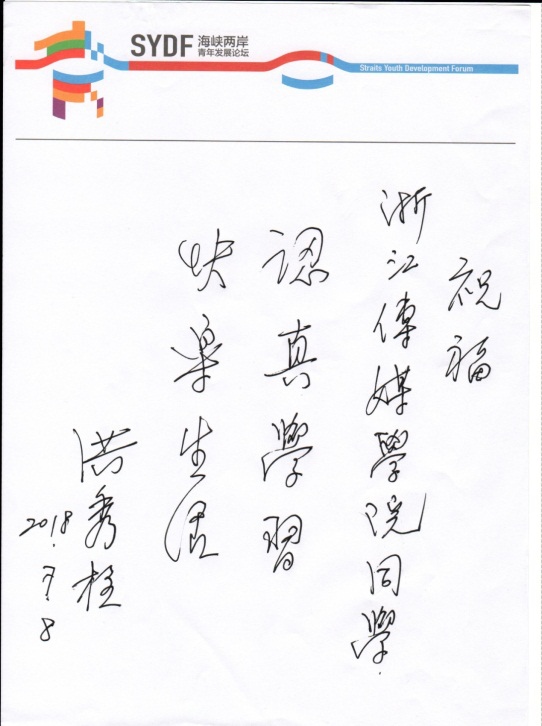 SYDF 海峡两岸
青年发展论坛
Straits Youth Development Forum
祝福
浙江傳媒學院同學
認真學習
快樂生活
洪秀柱
2018.7.8